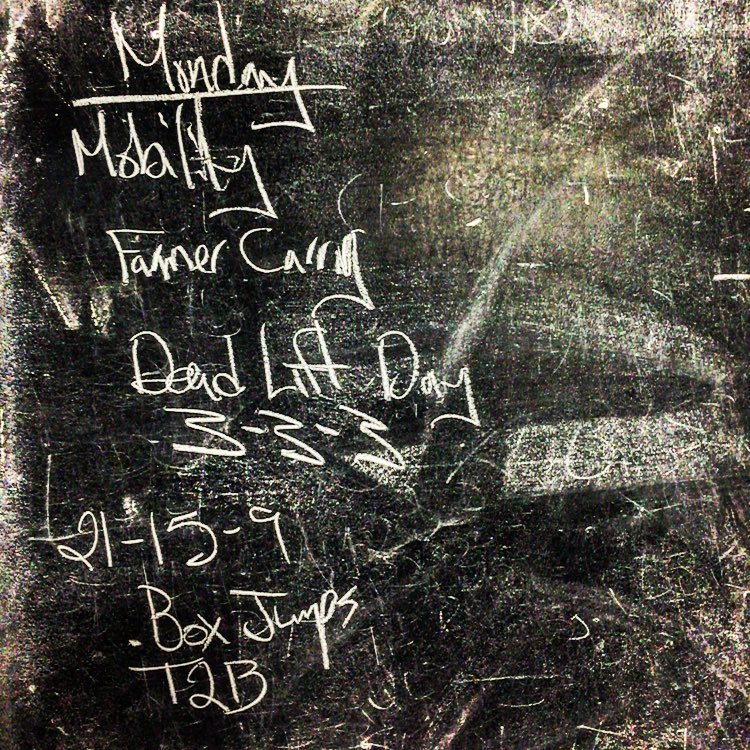 Monday
Mobility
Farmer Carry
Dead Lift Day
3-3-3
21-15-9
Box Jumps
T2B